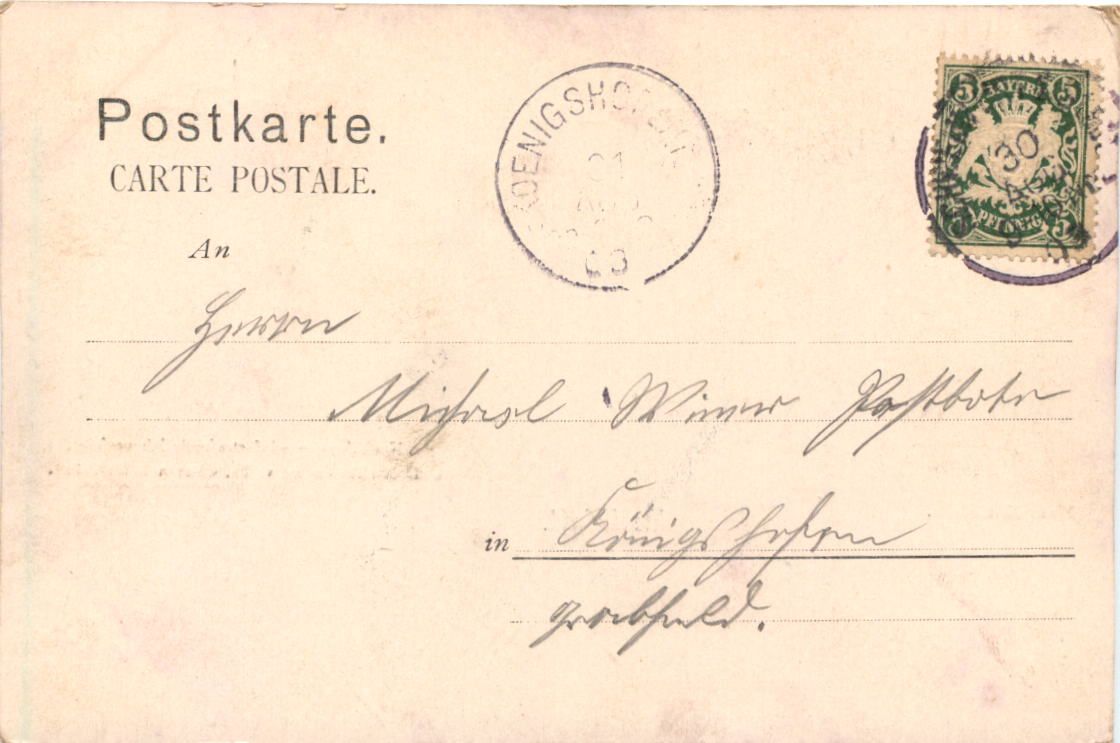 Postkarte.
CARTE POSTALE.
An
Herrn
Michael Wiener Postbote
in Königshofen
Grabfeld.
KOENIGSHOFEN
31
AUG
03
5 BAYERN 5
5 PFENNIG 5
30
AUG